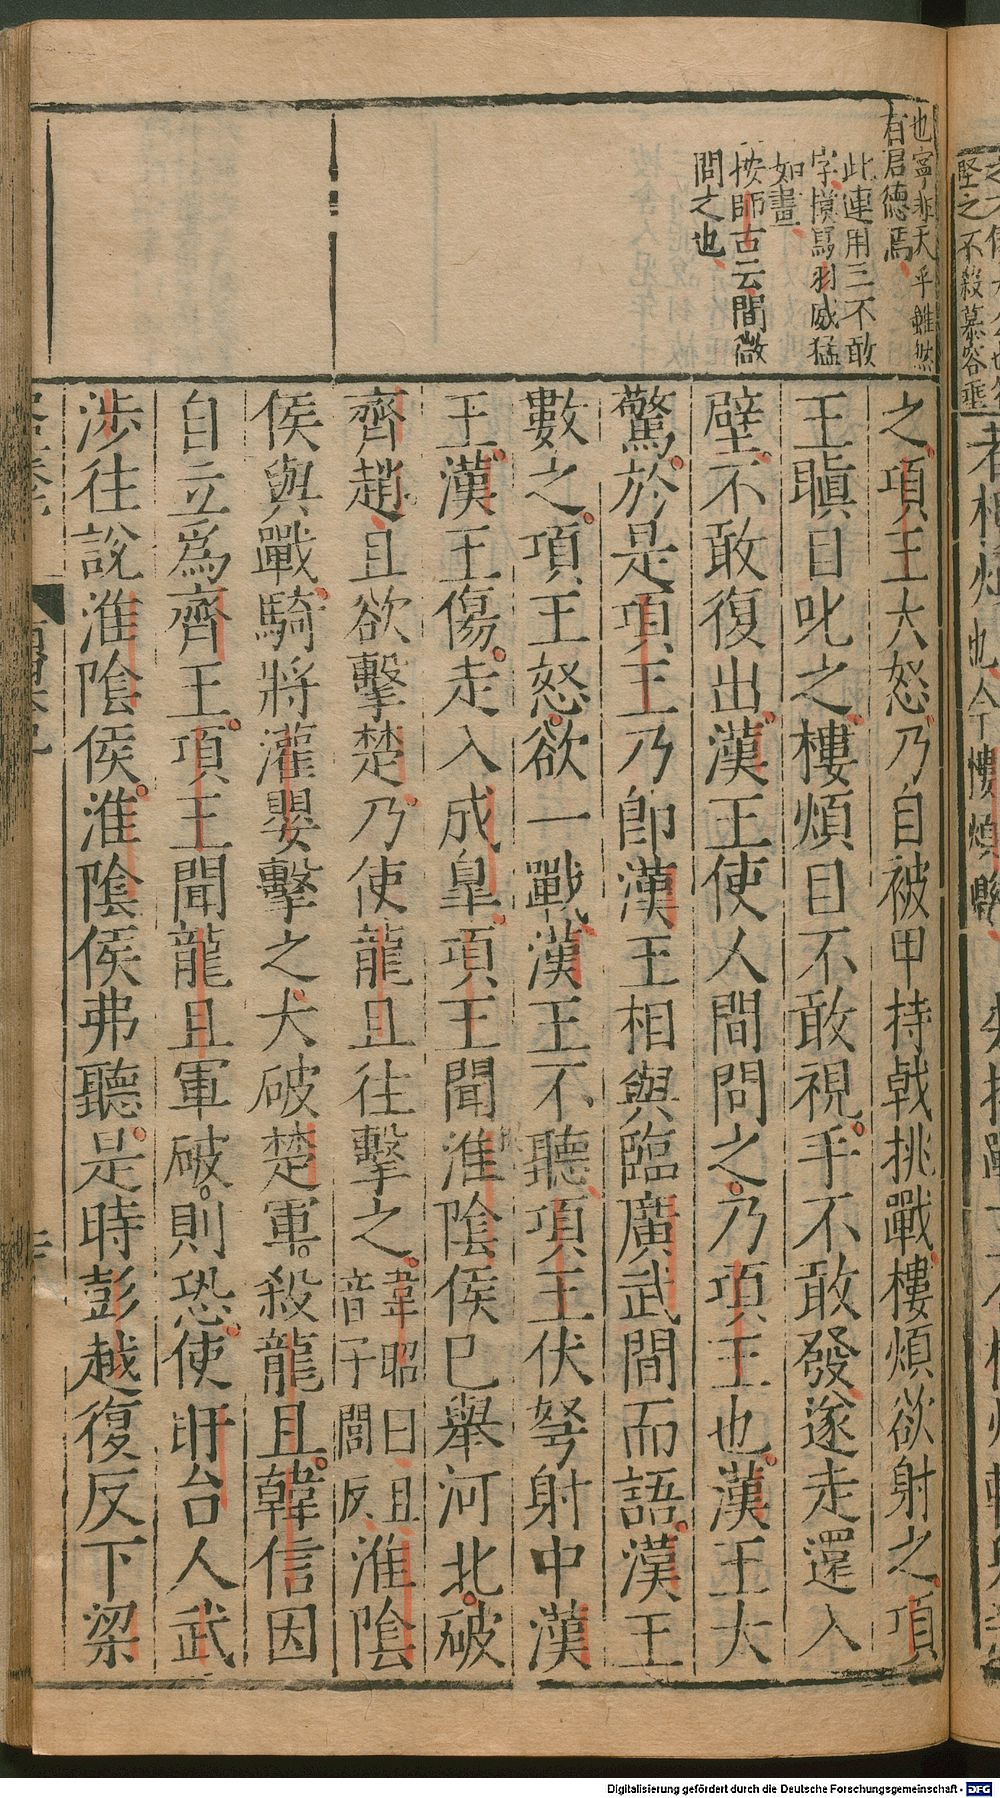 也寧非天乎雖然
有君德焉
此連用三不敢
字摸寫羽威猛
如畫
按師古云間微
問之也
之項王大怒乃自被甲持戟挑戰樓煩欲射之項
王瞋目叱之樓煩目不敢視手不敢發遂走還入
壁不敢復出漢王使人間問之乃項王也漢王大
驚於是項王乃卽漢王相與臨廣武間而語漢王
數之項王怒欲一戰漢王不聽項王伏弩射中漢
王漢王傷走入成皐項王聞淮陰侯已舉河北破
齊趙且欲擊楚乃使龍且往擊之韋昭曰且音子閭反淮陰
侯與戰騎將灌嬰擊之大破楚軍殺龍且韓信因
自立爲齊王項王聞龍且軍破則恐使盱台人武
涉往說淮陰侯淮陰侯弗聽是時彭越復反下梁
Digitalisierung gefördert durch die Deutsche Forschungsgemeinschaft - DFG